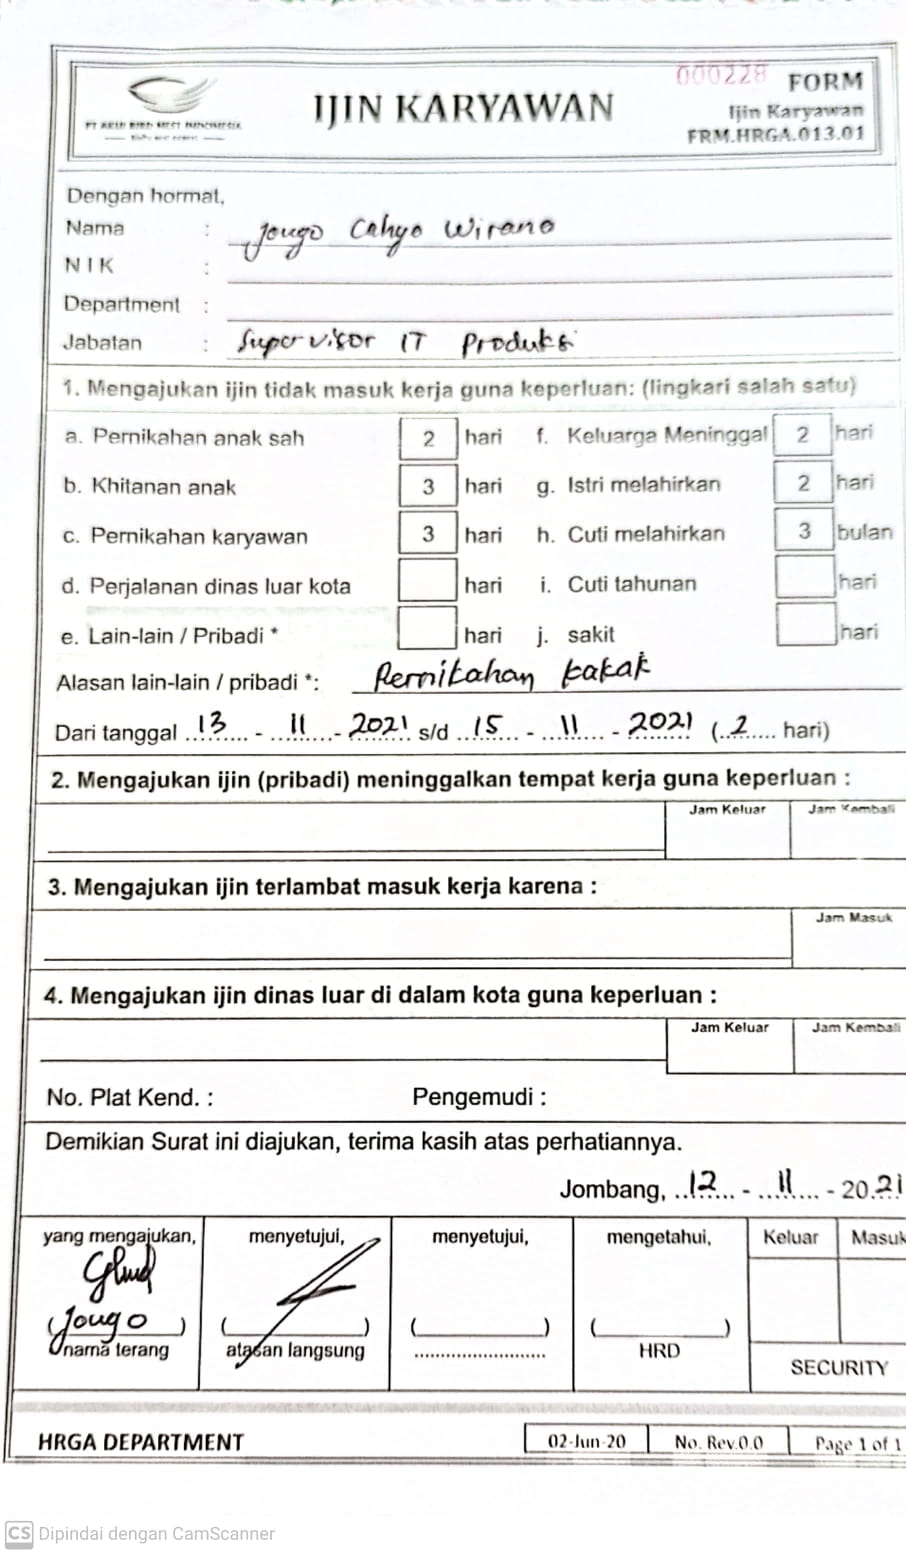 000228
FORM
IJIN KARYAWAN
Ijin Karyawan
FRM.HRGA.013.01
Dengan hormat,
Nama : Jougo Cahyo Wirano
N I K :
Department :
Jabatan : Supervisor IT Produksi
1. Mengajukan ijin tidak masuk kerja guna keperluan: (lingkari salah satu)
a. Pernikahan anak sah 2 hari f. Keluarga Meninggal 2 hari
b. Khitanan anak 3 hari g. Istri melahirkan 2 hari
c. Pernikahan karyawan 3 hari h. Cuti melahirkan 3 bulan
d. Perjalanan dinas luar kota hari i. Cuti tahunan hari
e. Lain-lain / Pribadi * hari j. sakit hari
Alasan lain-lain / pribadi *: Pernikahan kakak
Dari tanggal 13 - 11 - 2021 s/d 15 - 11 - 2021 (2 hari)
2. Mengajukan ijin (pribadi) meninggalkan tempat kerja guna keperluan :
Jam Keluar Jam Kembali
3. Mengajukan ijin terlambat masuk kerja karena :
Jam Masuk
4. Mengajukan ijin dinas luar di dalam kota guna keperluan :
Jam Keluar Jam Kembali
No. Plat Kend. : Pengemudi :
Demikian Surat ini diajukan, terima kasih atas perhatiannya.
Jombang, 12 - 11 - 2021
yang mengajukan, menyetujui, menyetujui, mengetahui, Keluar Masuk
(Jougo) ( ) ( ) ( )
nama terang atasan langsung HRD
SECURITY
HRGA DEPARTMENT 02-Jun-20 No. Rev.0.0 Page 1 of 1
CS Dipindai dengan CamScanner